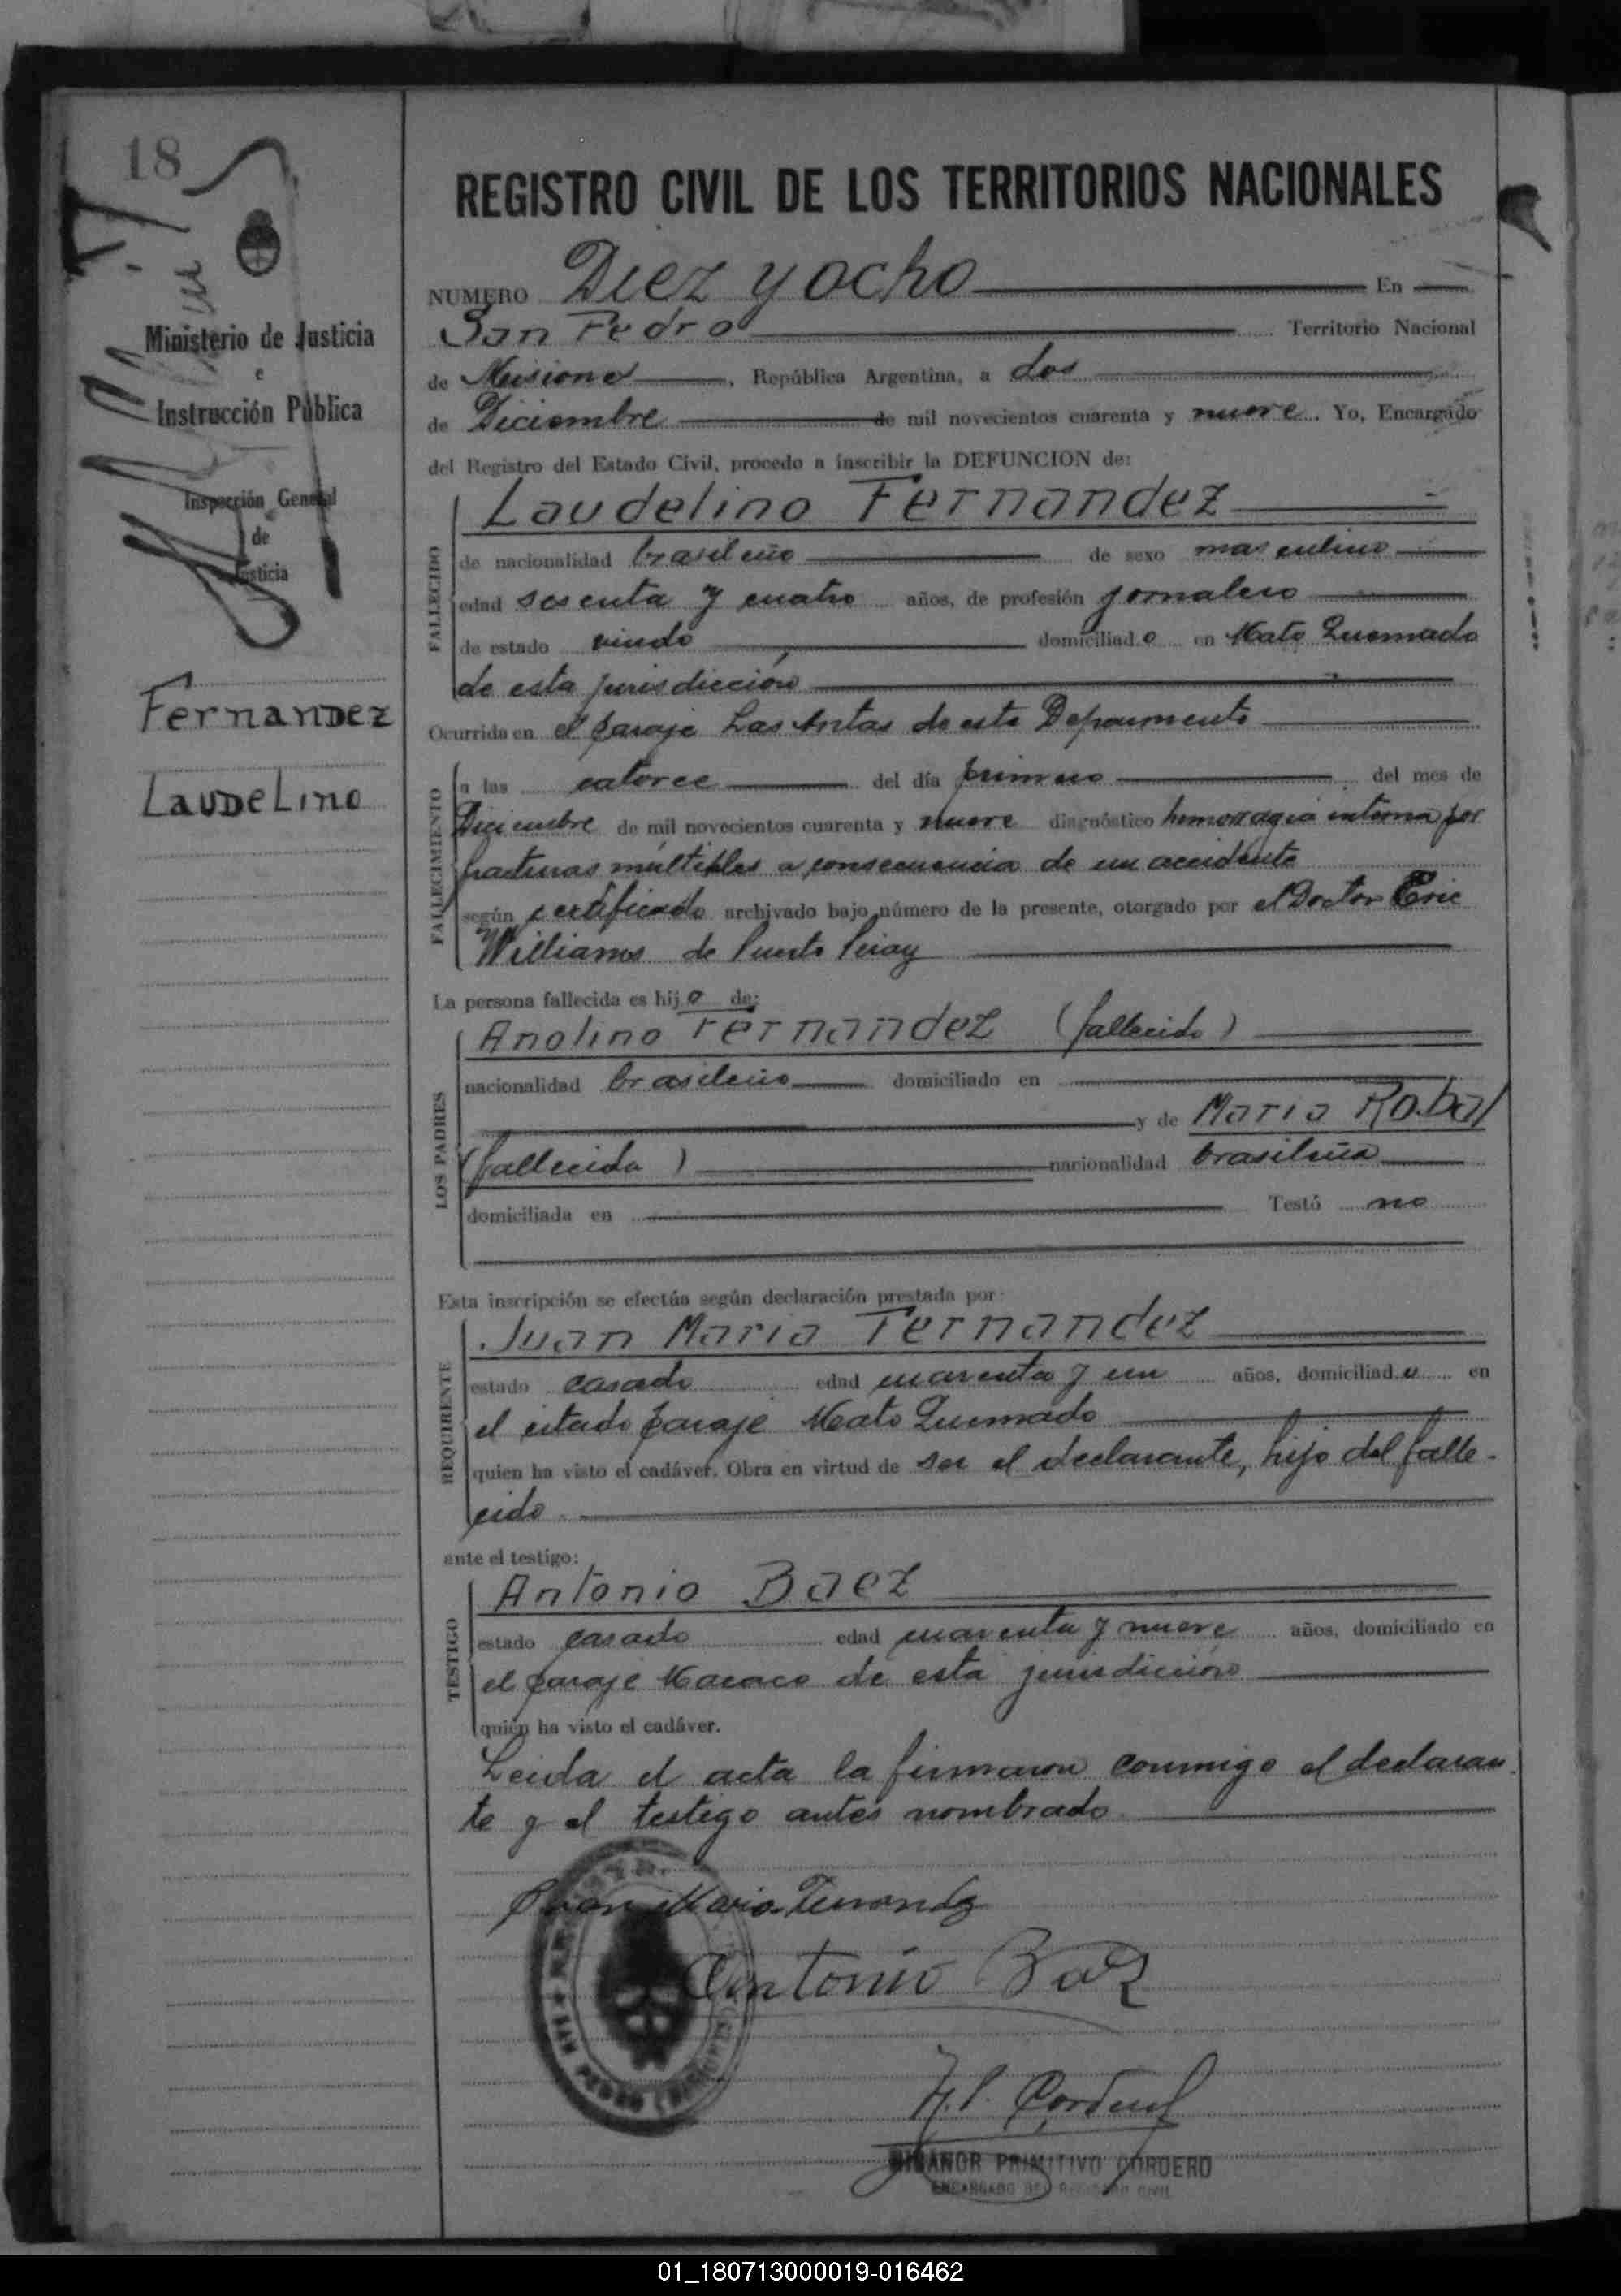 18
Ministerio de Justicia
e
Instrucción Pública
Inspección General
de
Justicia
Fernandez
Laudelino
REGISTRO CIVIL DE LOS TERRITORIOS NACIONALES
NUMERO Diez y ocho En
San Pedro Territorio Nacional
de Misiones, República Argentina, a dos
de Diciembre de mil novecientos cuarenta y nueve. Yo, Encargado
del Registro del Estado Civil, procedo a inscribir la DEFUNCION de:
FALLECIDO
Laudelino Fernandez
de nacionalidad brasileño de sexo masculino
edad sesenta y cuatro años, de profesión jornalero
de estado viudo domiciliado en Mato Quemado
de esta jurisdicción
Ocurrida en el paraje Las Antas de este
FALLECIMIENTO
a las catorce del día primero del mes de
Diciembre de mil novecientos cuarenta y nueve diagnóstico hemorragia interna por
fracturas múltiples a consecuencia de un accidente
según certificado archivado bajo número de la presente, otorgado por el Doctor Eric
Williams de Puerto Piray
La persona fallecida es hijo de:
LOS PADRES
Anolino Fernandez (fallecido)
nacionalidad brasileño domiciliado en
y de Maria Robal
(fallecida) nacionalidad brasileña
domiciliada en Testó no
Esta inscripción se efectúa según declaración prestada por:
REQUIRENTE
Juan Maria Fernandez
estado casado edad cuarenta y un años, domiciliado en
el citado paraje Mato Quemado
quien ha visto el cadáver. Obra en virtud de ser el declarante, hijo del falle-
cido
ante el testigo:
TESTIGO
Antonio Baez
estado casado edad cuarenta y nueve años, domiciliado en
el paraje Macaco de esta jurisdicción
quien ha visto el cadáver.
Leida el acta la firmaron conmigo el declaran
te y el testigo antes nombrado
Juan Maria Fernandez
Antonio Baez
SAN PEDRO (MISIONES)
N. P. Cordero
NICANOR PRIMITIVO CORDERO
ENCARGADO DEL REGISTRO CIVIL
01_180713000019-016462